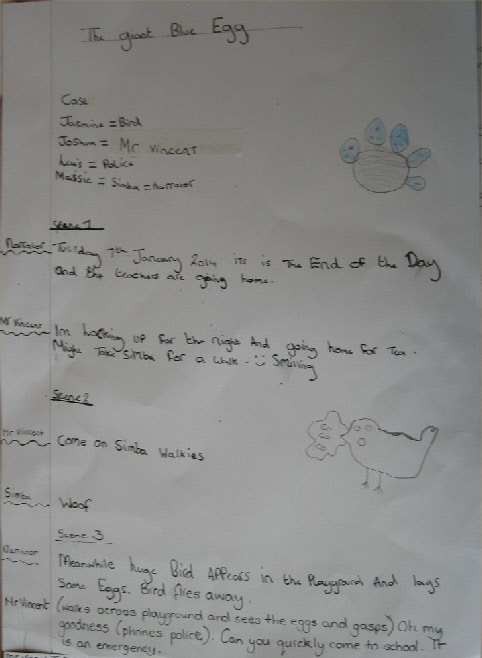 The giant Blue Egg
Case
Jasmine = Bird
Joshua = Mr Vincent
= Police
Massie = Simba = narrator
Scene 1
Narrator Tuesday 7th January 2014 its is The End of the Day
and the teachers are going home.
Mr Vincent Im locking up for the night And going home for Tea.
Might Take Simba for a walk - Smiling
Scene 2
Mr Vincent Come on Simba Walkies
Simba Woof
Scene 3
Narrator Meanwhile huge Bird Appears in the Playground And lays
Some Eggs. Bird flies away.
Mr Vincent (walks across playground and sees the eggs and gasps) Oh my
goodness (phones police). Can you quickly come to school. It
is an emergency.